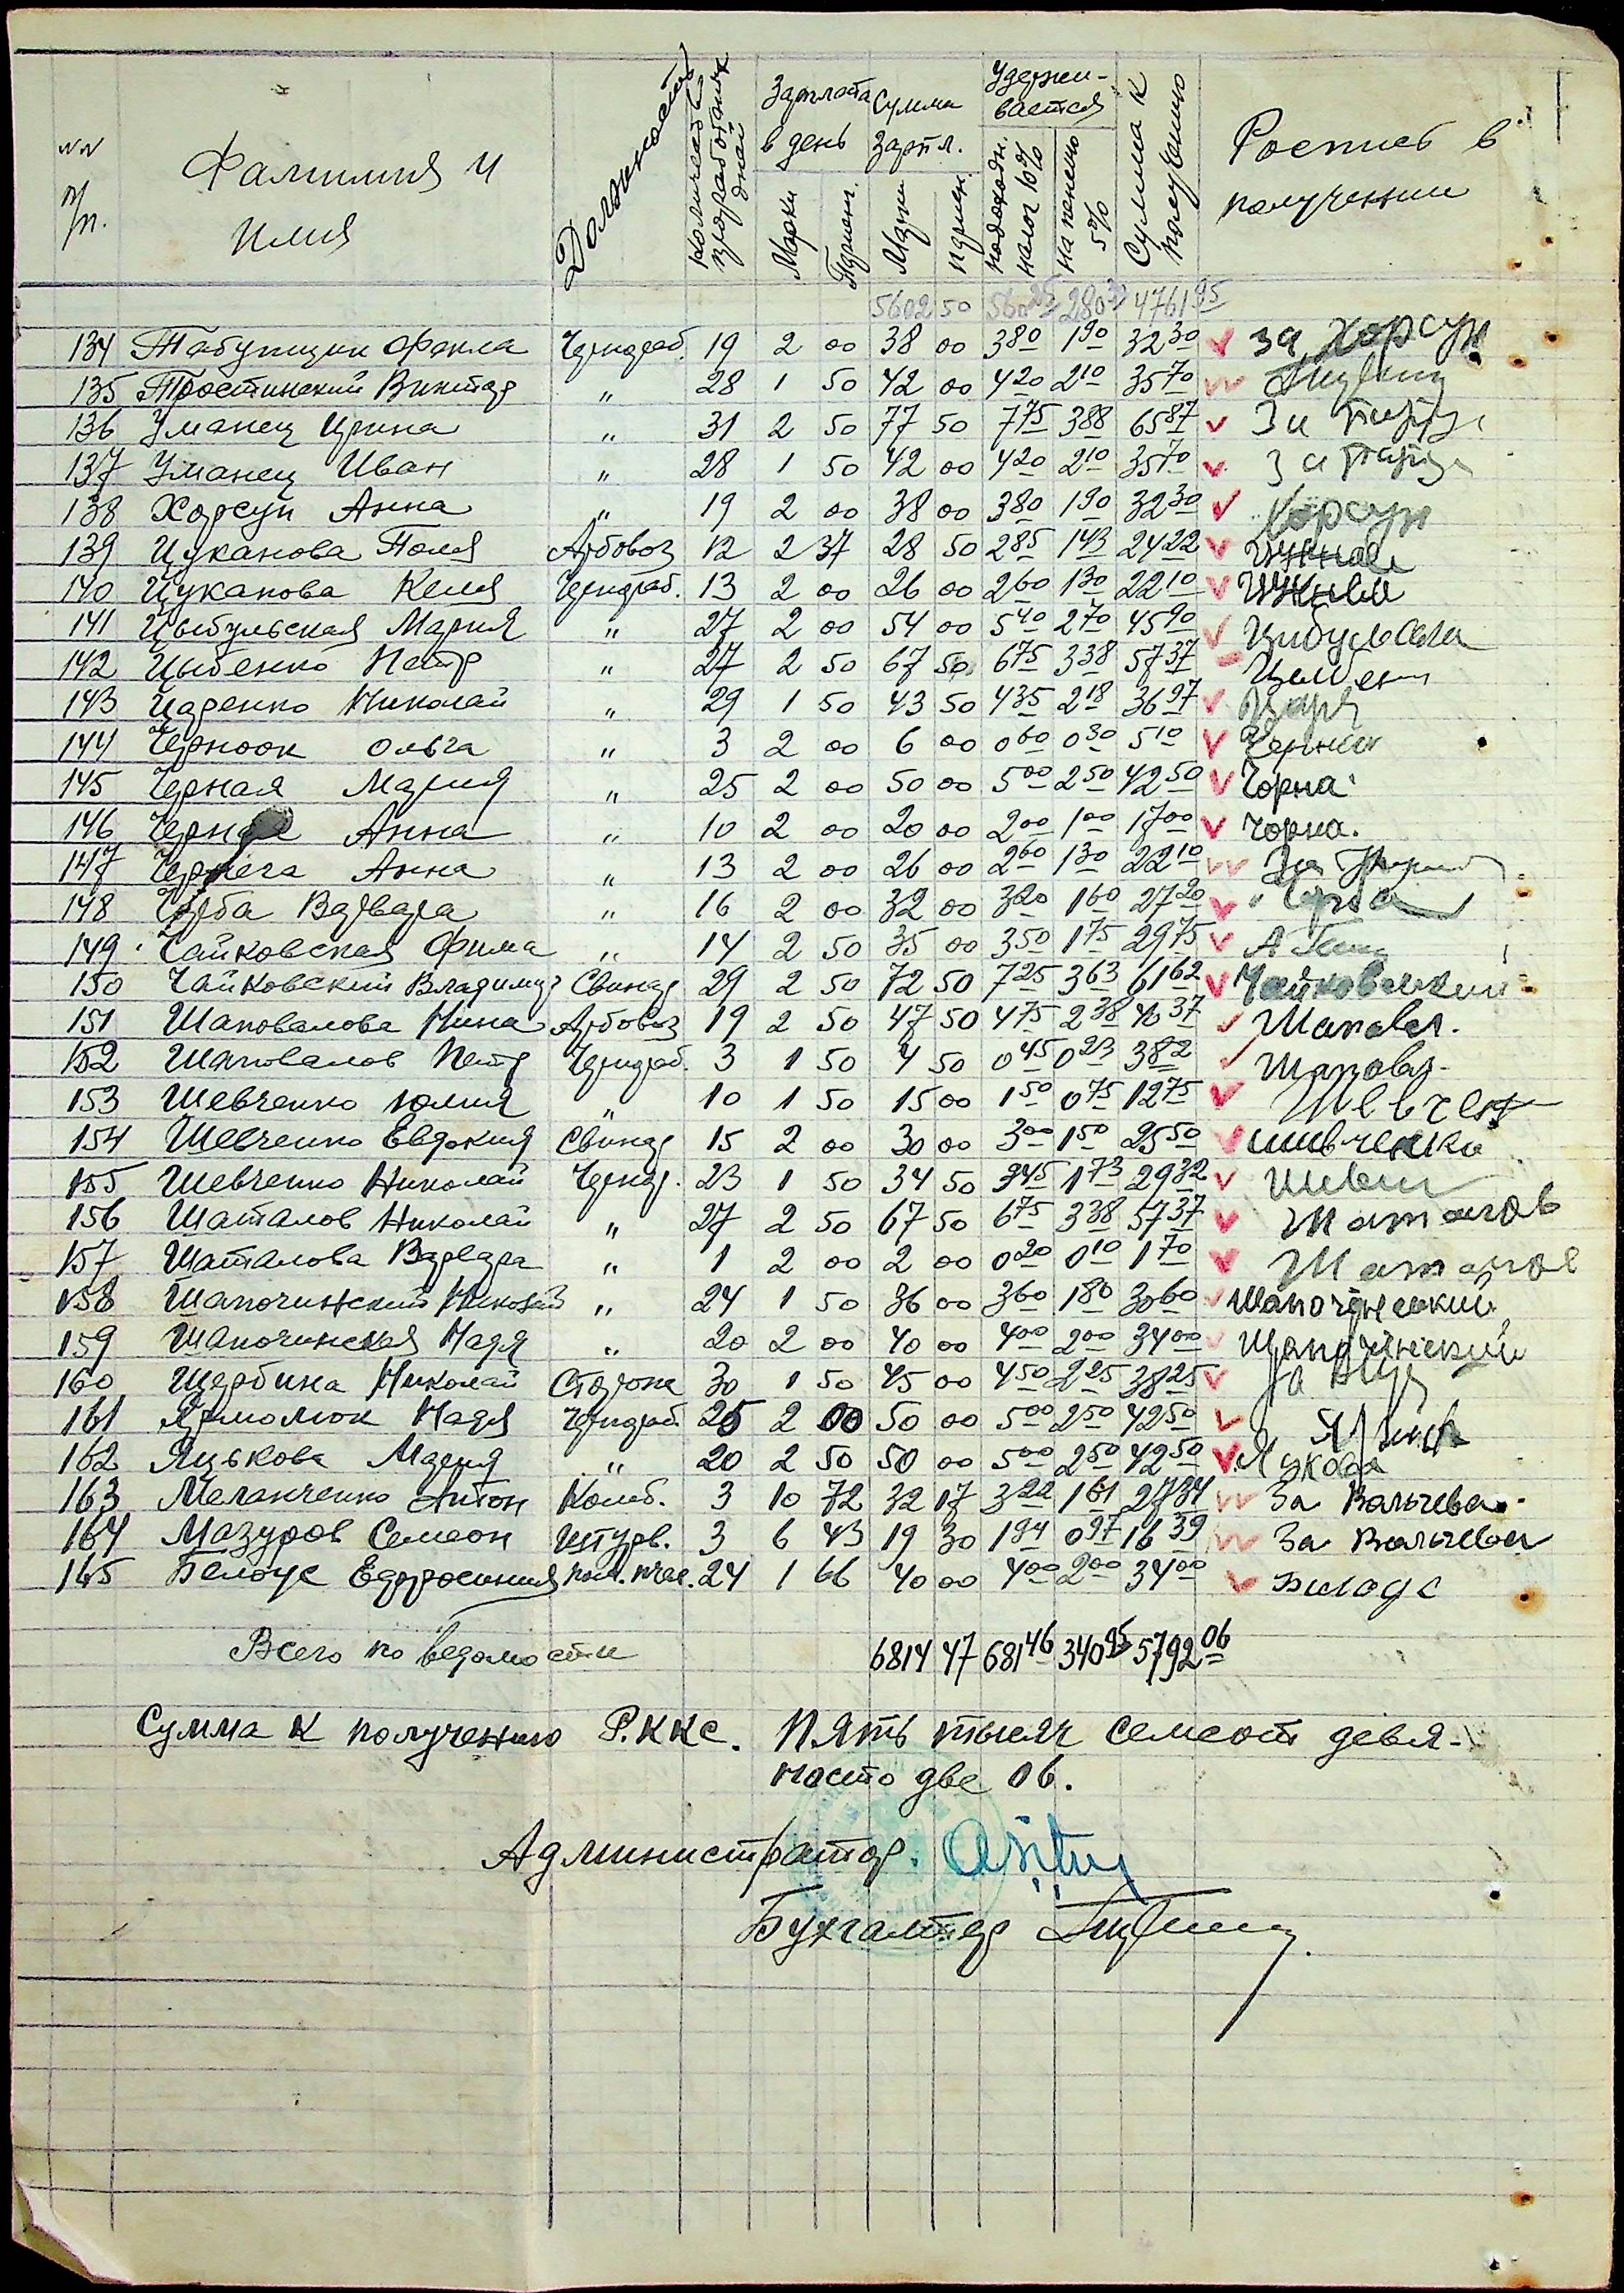 NN п/п. Фамилия и Имя Должность Количество проработаных дней Зарплата в день Марки Пфенинг. Сумма зарпл. Марки пфенн. Удержи-вается подоходн. налог 10% на пенсию 5% Сумма к получению Роспись в получении
5602 50 560 25 280 4761 95
134 Табунщик Фекла Чернораб. 19 2 00 38 00 3 80 1 90 32 30 за Хорсун
135 Тростинский Виктор " 28 1 50 42 00 4 20 2 10 35 70
136 Уманец Ирина " 31 2 50 77 50 7 75 3 88 65 87 За
137 Уманец Иван " 28 1 50 42 00 4 20 2 10 35 70 За
138 Хорсун Анна " 19 2 00 38 00 3 80 1 90 32 30 Хорсун
139 Цуканова Поля Арбовоз 12 2 37 28 50 2 85 1 43 24 22
140 Цуканова Келя Чернораб. 13 2 00 26 00 2 60 1 30 22 10
141 Цыбульская Мария " 27 2 00 54 00 5 40 2 70 45 90
142 Цыбенко Петр " 27 2 50 67 50 6 75 3 38 57 37
143 Царенко Николай " 29 1 50 43 50 4 35 2 18 36 97
144 Черноок Ольга " 3 2 00 6 00 0 60 0 30 5 10
145 Черная Мария " 25 2 00 50 00 5 00 2 50 42 50 Чорна
146 Черная Анна " 10 2 00 20 00 2 00 1 00 17 00 Чорна.
147 Чернега Анна " 13 2 00 26 00 2 60 1 30 22 10 За
148 Чурба Варвара " 16 2 00 32 00 3 20 1 60 27 20
149 Чайковская Фима " 14 2 50 35 00 3 50 1 75 29 75
150 Чайковский Владимир Свинар 29 2 50 72 50 7 25 3 63 61 62 Чайковский
151 Шаповалова Нина Арбовоз 19 2 50 47 50 4 75 2 38 40 37 Шаповал.
152 Шаповалов Петр Чернораб. 3 1 50 4 50 0 45 0 23 3 82 Шаповал.
153 Шевченко Юлия " 10 1 50 15 00 1 50 0 75 12 75 Шевчен
154 Шевченко Евдокия Свинар 15 2 00 30 00 3 00 1 50 25 50 шивченко
155 Шевченко Николай Чернор. 23 1 50 34 50 3 45 1 73 29 32
156 Шаталов Николай " 27 2 50 67 50 6 75 3 38 57 37 Шаталов
157 Шаталова Варвара " 1 2 00 2 00 0 20 0 10 1 70 Шаталов
158 Шапочинский Николай " 24 1 50 36 00 3 60 1 80 30 60 Шапочинский
159 Шапочинская Надя " 20 2 00 40 00 4 00 2 00 34 00 Шапочинский
160 Щербина Николай Сторож 30 1 50 45 00 4 50 2 25 38 25 За
161 Ярмолюк Надя Чернораб. 25 2 00 50 00 5 00 2 50 42 50
162 Яцькова Мария " 20 2 50 50 00 5 00 2 50 42 50
163 Меланченко Антон Комб. 3 10 72 32 17 3 22 1 61 27 34 За Вальчева
164 Мазуров Семеон Штурв. 3 6 43 19 30 1 94 0 97 16 39 За Вальчева
165 Белоус Ефросиния пом. 24 1 66 40 00 4 00 2 00 34 00 Билоус
Всего по ведомости 6814 47 681 46 340 95 5792 06
Сумма к получению Р.ККС. Пять тысяч семсот девя-
носто две 06.
Администратор.
Бухгалтер